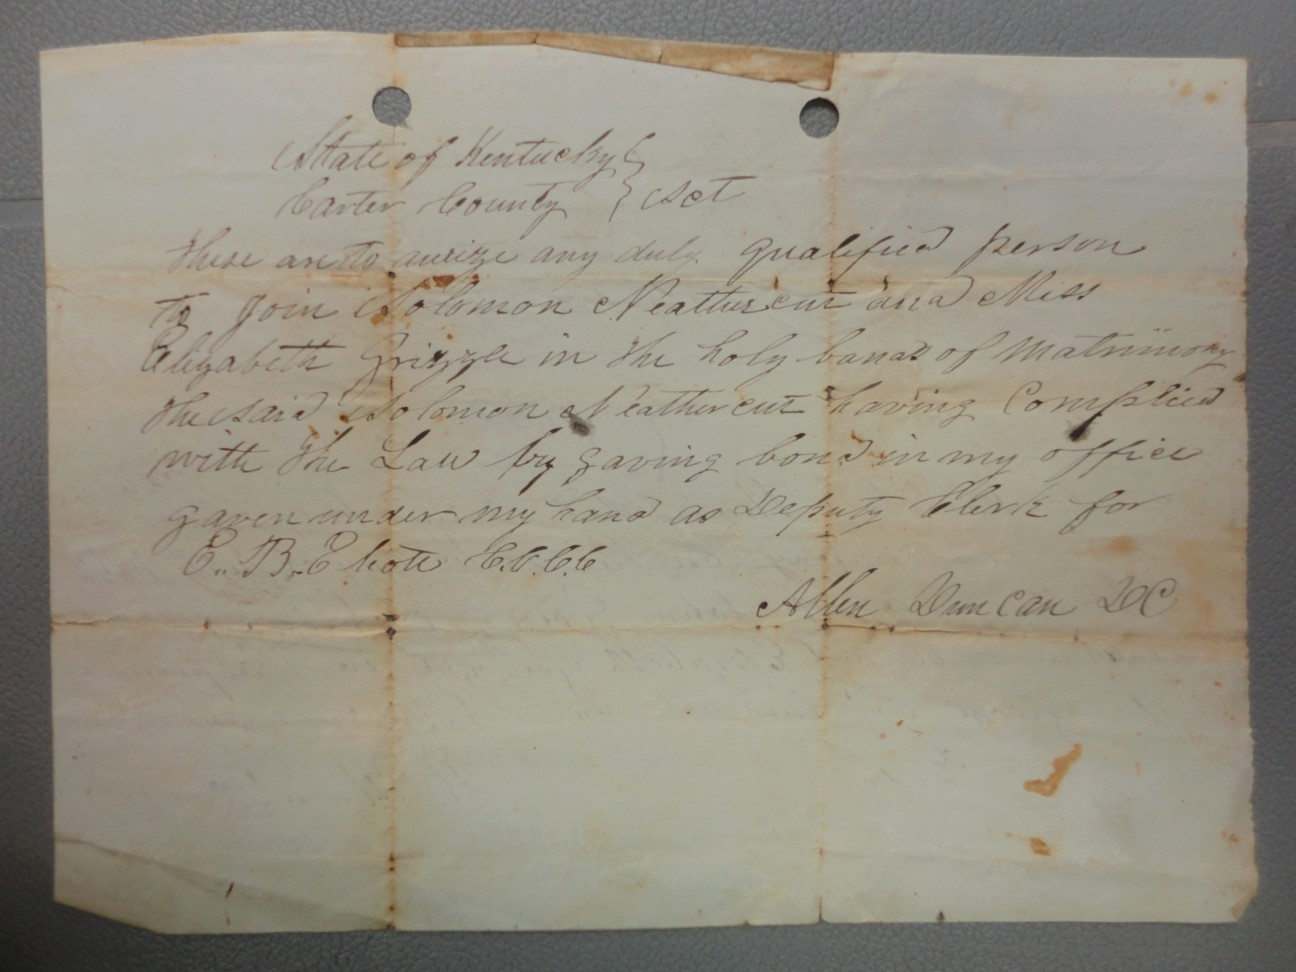 State of Kentucky }
Carter County } Sct
These are to aurize any duly qualified person
to join Solomon Neathercut and Miss
Elizabeth Grizzle in the holy bands of Matrimony
the said Solomon Neathercut having Complied
with the Law by gaving bond in my office
gaven under my hand as Deputy Clerk for
E. B. Eliott C.C.C.C
Allen Duncan DC